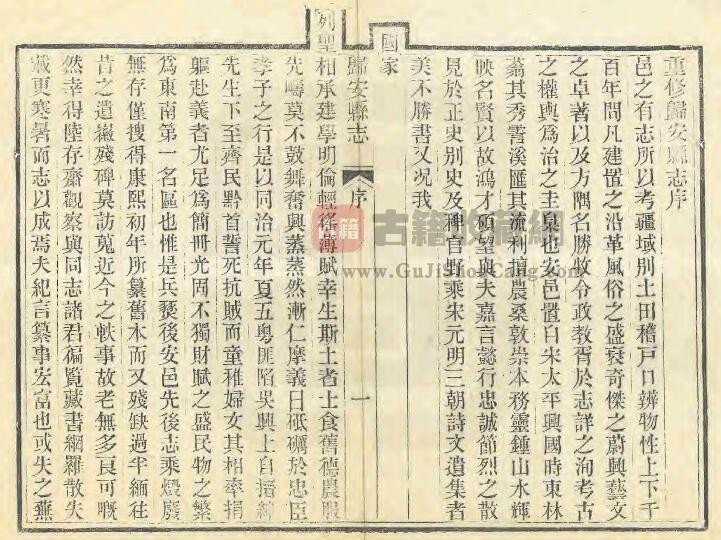 重修歸安縣志序
邑之有志所以考疆域別土田稽戶口辨物性上下千
百年間凡建置之沿革風俗之盛衰奇傑之蔚興藝文
之卓著以及方隅名勝牧令政教胥於志詳之洵考古
之權輿爲治之圭臬也安邑置自宋太平興國時東林
蓊其秀霅溪匯其流利擅農桑敦崇本務靈鍾山水輝
映名賢以故鴻才碩望與夫嘉言懿行忠誠節烈之散
見於正史別史及稗官野乘宋元明三朝詩文遺集者
美不勝書又況我
國家
歸安縣志 序 一
列聖相承建學明倫輕徭薄賦幸生斯土者士食舊德農服
先疇莫不鼓舞奮興蒸蒸然漸仁摩義日砥礪於忠臣
孝子之行是以同治元年夏五粵匪陷吳興上自搢紳
先生下至齊民黔首誓死抗賊而童稚婦女其相率捐
軀赴義者尤足爲簡冊光固不獨財賦之盛民物之繁
爲東南第一名區也惟是兵燹後安邑先後志乘燬廢
無存僅搜得康熙初年所纂舊本而又殘缺過半緬往
昔之遺徽殘碑莫訪蒐近今之軼事故老無多良可嘅
然幸得陸存齋觀察與同志諸君徧覽藏書網羅散失
載更寒暑而志以成焉夫紀言纂事宏富也或失之蕪
古籍
古籍收藏網
www.GuJiShouCang.com